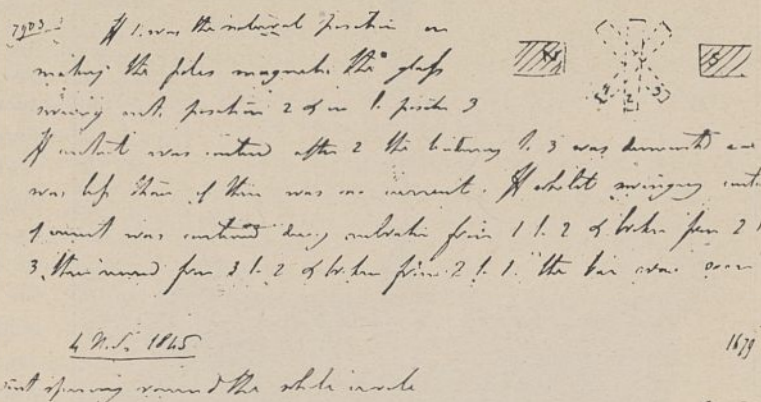 7903. If 1. was the natural position on
making the poles magnetic the glass
swung into position 2 & on to position 3
If contact was continued after 2 the tendency to 3 was diminished and
was less than if there was no current. If whilst swinging
current was continued during vibration from 1 to 2 & broken from 2 to
3, then renewed from 3 to 2 & broken from 2 to 1. the bar was soon
N S
1 2 3
4 Nov. 1845
1679
spinning round the whole circle